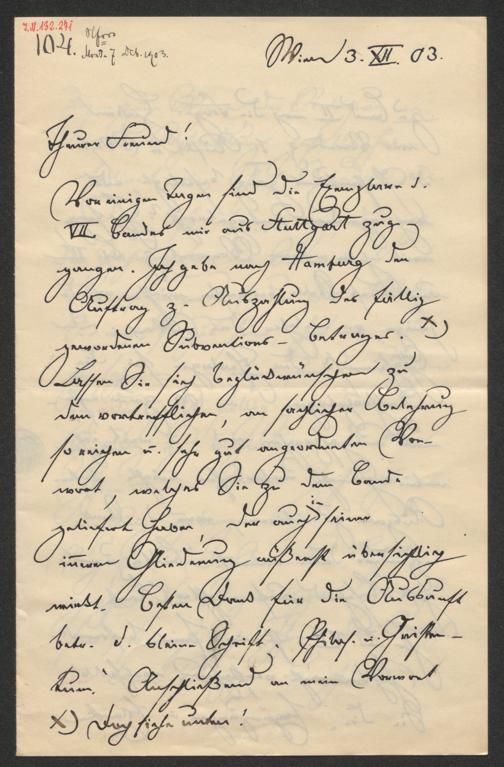 I.N. 132.241
104.
Mont. 7 Dez. 1903.
Wien 3. XII. 03.
Theurer Freund!
Vor einigen Tagen sind die Exemplare d.
VII. Bandes mir aus Stuttgart zuge-
gangen. Ich gebe nach Hamburg den
Auftrag z. Auszahlung des fällig
gewordenen Subventions-betrages. x)
Lassen Sie sich beglückwünschen zu
dem vortrefflichen, an sachlicher Belehrung
so reichen u. sehr gut angeordneten Vor-
wort, welches Sie zu dem Bande
geliefert haben, der auch in seiner
inneren Gliederung äußerst übersichtlich
wirkt. Besten Dank für die Auskunft
betr. d. kleine Schrift. "Ethik u. Christen-
tum." Anschließend an mein Vorwort
x) Doch siehe unten!